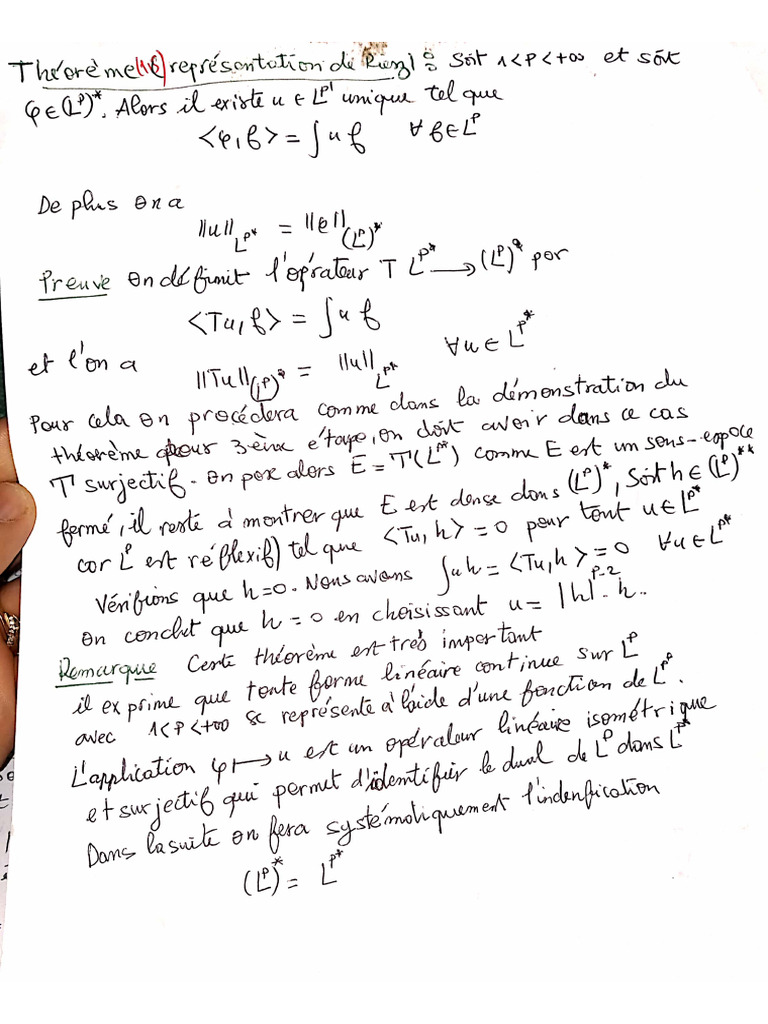 Théorème (16) représentation de Riesz : Soit 1<p<+∞ et soit
φ∈(L^p)*. Alors il existe u ∈ L^p' unique tel que
<φ,f> = ∫u f ∀f∈L^p
De plus on a
||u||_{L^p*} = ||e||_{(L^p)*}
Preuve on définit l'opérateur T L^p* → (L^p)* por
<Tu,f> = ∫u f
et l'on a ||Tu||_{(L^p)*} = ||u||_{L^p*} ∀u∈L^p*
Pour cela on procédera comme dans la démonstration du
théorème pour 3ème étape, on doit avoir dans ce cas
T surjectif. on pose alors E = T(L^p*) comme E est un sous-espace
fermé, il reste à montrer que E est dense dans (L^p)*, Soit h∈(L^p)**
cor L^p est réflexif) tel que <Tu,h> = 0 pour tout u∈L^p*
Vérifions que h=0. Nous avons ∫uh = <Tu,h> = 0 ∀u∈L^p*
on conclut que h=0 en choisissant u = |h|^{p-2}.h.
Remarque Cette théorème est très important
il exprime que toute forme linéaire continue sur L^p
avec 1<p<+∞ se représente à l'aide d'une fonction de L^p.
L'application φ↦u est un opérateur linéaire isométrique
et surjectif qui permet d'identifier le dual de L^p dans L^p*
Dans la suite on fera systématiquement l'indenfication
(L^p)* = L^p*